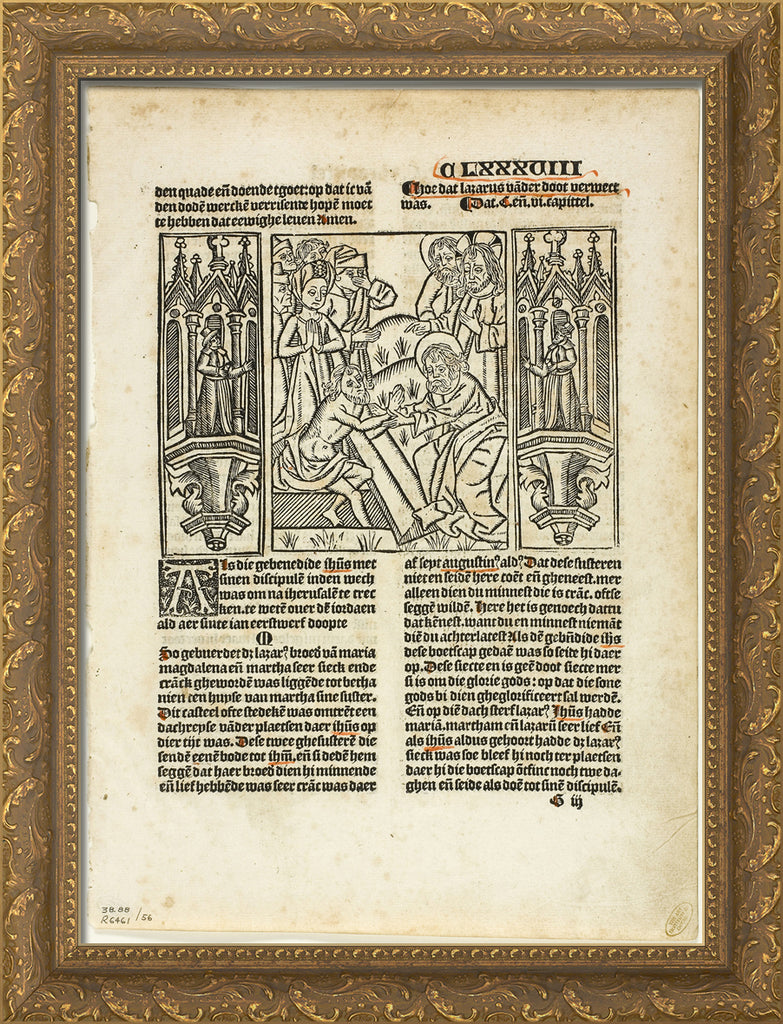 C LXXXVIII
den quade eñ doende tgoet: op dat ic vā
den dodē werckē verrisente hopē moet
te hebben dat eewighe leuen Amen.
¶hoe dat lazarus vāder doot verwect
was. ¶Dat. C. eñ. vi. capittel.
AIs die gebenedide ihūs met
sinen discipulē inden wech
was om na iherusalē te trec
ken. te wetē ouer dē iordaen
ald aer sinte ian eerstwerf doopte
So gebuerdet dz lazar⁹ broed vā maria
magdalena eñ martha seer sieck ende
crāck ghewordē was liggēde tot betha
nien ten huyse van martha sine suster.
Dit casteel ofte stedekē was omtrēt een
dachreyse vāder plaetsen daer ihūs op
dier tijt was. Dese twee ghesusterē die
sendē eenē bode tot ihm̄. eñ si dedē hem
seggē dat haer broed dien hi minnende
eñ lief hebbēde was seer crāc was daer
af seyt augustin⁹ ald⁹ Dat dese susteren
niet en seidē here coēt eñ gheneest. mer
alleen dien du minnest die is crāc. oftse
seggē wildē. Here het is genoech dattu
dat kēnest. want du en minnest niemāt
diē du achterlatest Als dē gebñdide ihs
dese boetscap gedaē was so seide hi daer
op. Dese siecte en is geē doot siecte mer
si is om die glorie gods: op dat die sone
gods bi dien gheglorificeert sal werdē.
Eñ op diē dach sterf lazar⁹ Jhūs hadde
mariā. martham eñ lazarū seer lief Eñ
als ihūs aldus gehoort hadde dz lazar⁹
sieck was soe bleef hi noch ter plaetsen
daer hi die boetscap ōtfinc noch twe da-
ghen eñ seide als doē tot sinē discipulē.
S iij
38.88
R6461 /56